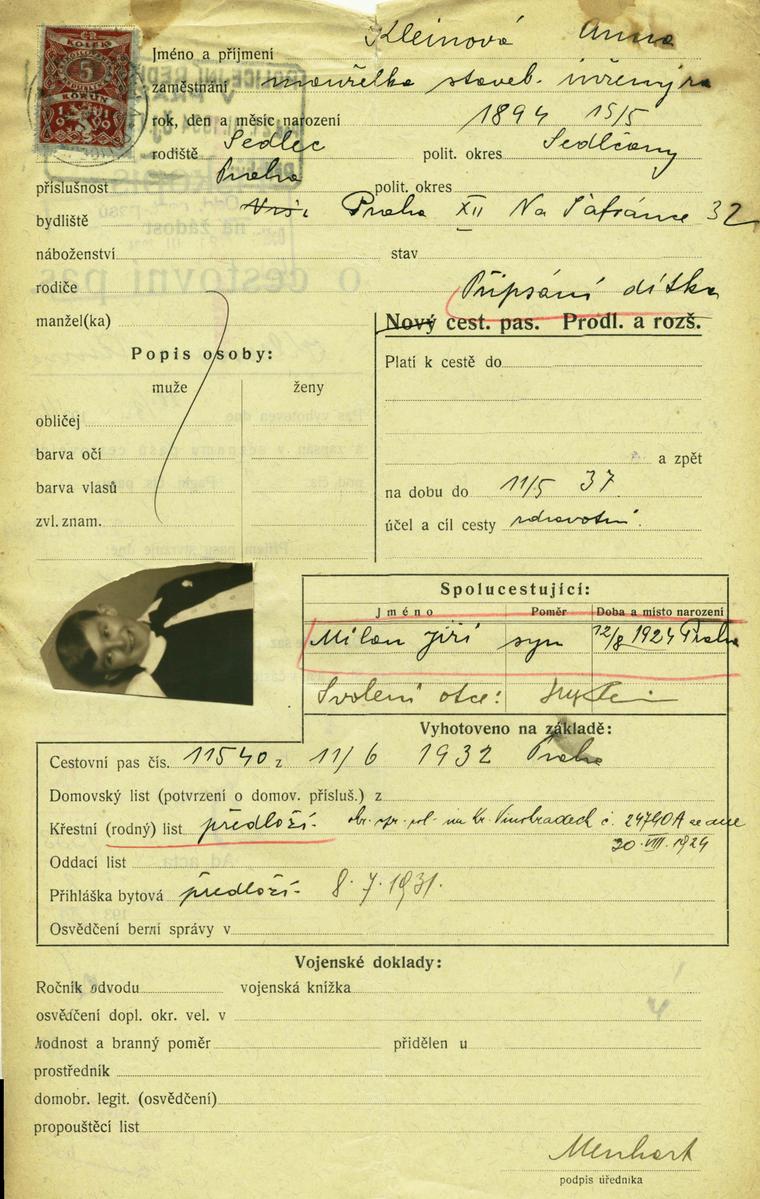 KOLEK
5
KORUN
Jméno a příjmení Kleinová Anna
zaměstnání manželka staveb. inženýra
rok, den a měsíc narození 1894 15/5
rodiště Sedlec polit. okres Sedlčany
příslušnost Praha polit. okres
bydliště Praha XII Na Šafránce 32
náboženství stav
rodiče Připsání dítka
manžel(ka)
Nový cest. pas. Prodl. a rozš.
Popis osoby:
muže ženy
obličej
barva očí
barva vlasů
zvl. znam.
Platí k cestě do
a zpět
na dobu do 11/5 37.
účel a cíl cesty zdravotní.
Spolucestující:
Jméno Poměr Doba a místo narození
Milan Jiří syn 12/8 1924 Praha
Svolení otce:
Vyhotoveno na základě:
Cestovní pas čís. 11540 z 11/6 1932 Praha
Domovský list (potvrzení o domov. přísluš.) z
Křestní (rodný) list předloží. na Kr. Vinohradech č. 24790A ze dne
20. VIII. 1924
Oddací list
Přihláška bytová předloží. 8. 7. 1931.
Osvědčení berní správy v
Vojenské doklady:
Ročník odvodu vojenská knížka
osvědčení dopl. okr. vel. v
hodnost a branný poměr přidělen u
prostředník
domobr. legit. (osvědčení)
propouštěcí list
Menhart
podpis úředníka